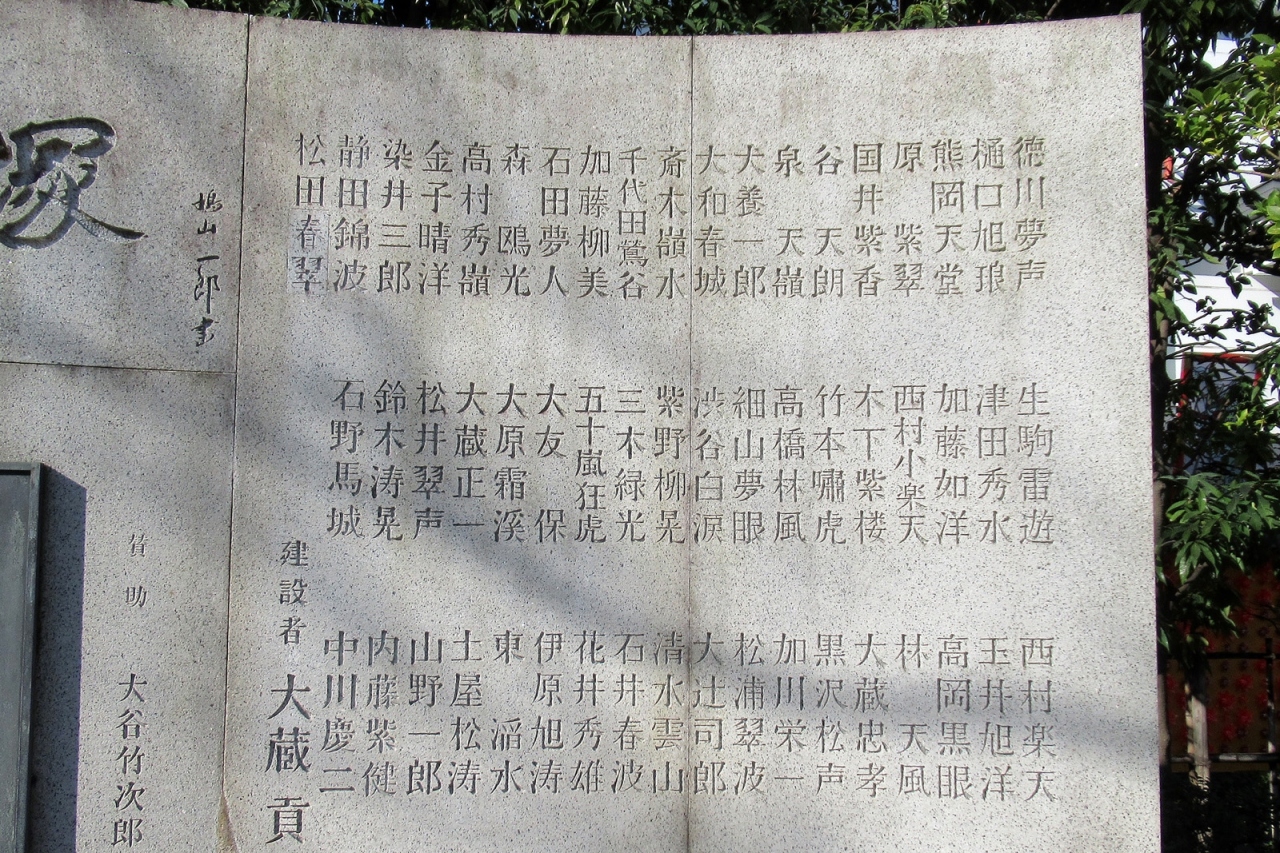 徳川夢声
樋口旭琅
熊岡天堂
原紫翠
国井紫香
谷天朗
泉天嶺
犬養一郎
大和春城
斎木嶺水
千代田鶯谷
加藤柳美
石田夢人
森鴎光
高村秀嶺
金子晴洋
染井三郎
静田錦波
松田春翠
生駒雷遊
津田秀水
加藤如洋
西村小楽天
木下紫楼
竹本嘯虎
高橋林風
細山夢眼
渋谷白涙
紫野柳晃
三木緑光
五十嵐狂虎
大友保
大原霜渓
大蔵正一
松井翠声
鈴木涛晃
石野馬城
西村楽天
玉井旭洋
高岡黒眼
林天風
大蔵忠孝
黒沢松声
加川栄一
松浦翠波
大辻司郎
清水雲山
石井春波
花井秀雄
伊原旭涛
東滔水
土屋松涛
山野一郎
内藤紫健
中川慶二
建設者 大蔵貢
塚
鳩山一郎書
賛助 大谷竹次郎